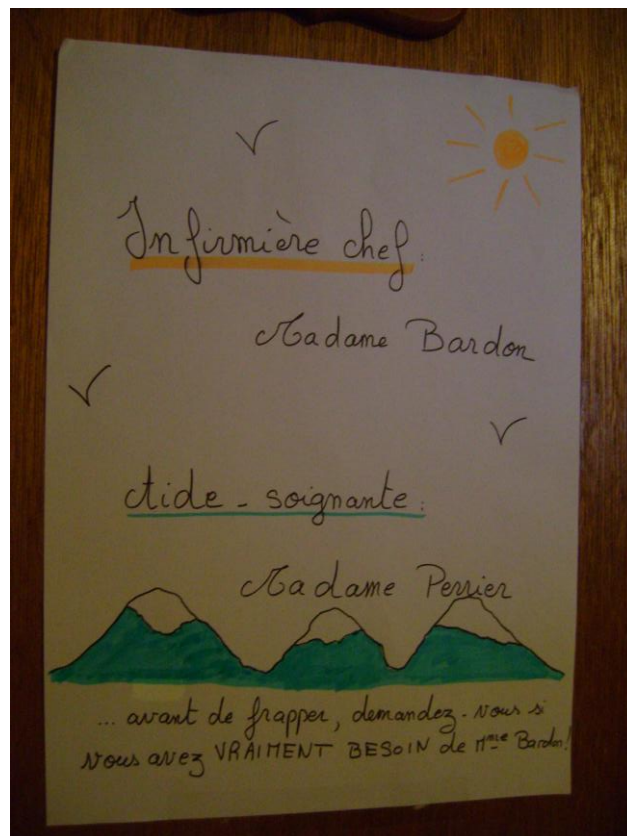 Infirmière chef :
Madame Bardon
Aide-soignante :
Madame Perrier
... avant de frapper, demandez-vous si
vous avez VRAIMENT BESOIN de Mme Bardon!